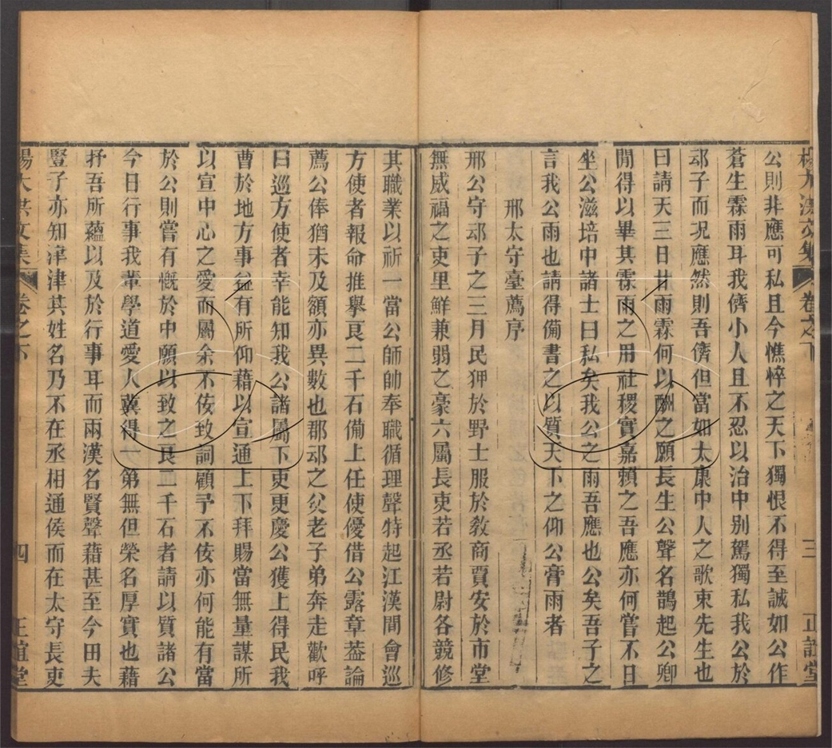 楊大洪文集 卷之下 三 正誼堂
公則非應可私且今憔悴之天下獨恨不得至誠如公作
蒼生霖雨耳我儕小人且不忍以治中別駕獨私我公於
邔子而況應然則吾儕但當如太康中人之歌束先生也
曰請天三日廿雨霖何以酬之願長生公聲名鵲起公卿
間得以畢其霖雨之用社稷實嘉賴之吾應亦何嘗不日
坐公滋培中諸士曰私矣我公之雨吾應也公矣吾子之
言我公雨也請得備書之以質天下之仰公膏雨者
邢太守臺薦序
邢公守邔子之三月民狎於野士服於教商賈安於市堂
無威福之吏里鮮兼弱之豪六屬長吏若丞若尉各競修
其職業以祈一當公師帥奉職循理聲特起江漢間會巡
方使者報命推擧良二千石備上任使優借公露章葢論
薦公俸猶未及額亦異數也郡邔之父老子弟奔走歡呼
曰巡方使者幸能知我公諸屬下吏更慶公獲上得民我
曹於地方事益有所仰藉以宣通上下拜賜當無量謀所
以宣中心之愛而屬余不佞致詞顧予不佞亦何能有當
於公則嘗有慨於中願以致之良二千石者請以質諸公
今日行事我軰學道愛人冀得一第無但榮名厚實也藉
抒吾所蘊以及於行事耳而兩漢名賢聲藉甚至今田夫
豎子亦知津津其姓名乃不在丞相通侯而在太守長吏
楊大洪文集 卷之下 四 正誼堂